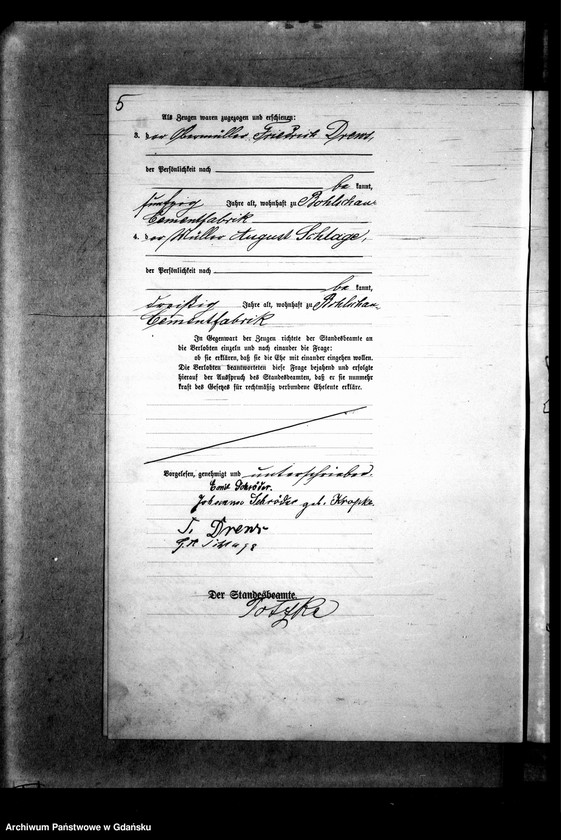 5
Als Zeugen waren zugezogen und erschienen:
3. der Obermüller Friedrich Drews,
der Persönlichkeit nach
be kannt,
fünfzig Jahre alt, wohnhaft zu Bohlschau
Cementfabrik
4. der Müller August Schlage,
der Persönlichkeit nach
be kannt,
dreißig Jahre alt, wohnhaft zu Bohlschau
Cementfabrik
In Gegenwart der Zeugen richtete der Standesbeamte an
die Verlobten einzeln und nach einander die Frage:
ob sie erklären, daß sie die Ehe mit einander eingehen wollen.
Die Verlobten beantworteten diese Frage bejahend und erfolgte
hierauf der Ausspruch des Standesbeamten, daß er sie nunmehr
kraft des Gesetzes für rechtmäßig verbundene Eheleute erkläre.
Vorgelesen, genehmigt und unterschrieben
Emil Schröder.
Johanna Schröder geb. Kropke
F. Drews
Schlage
Der Standesbeamte.
Potzke
Archiwum Państwowe w Gdańsku